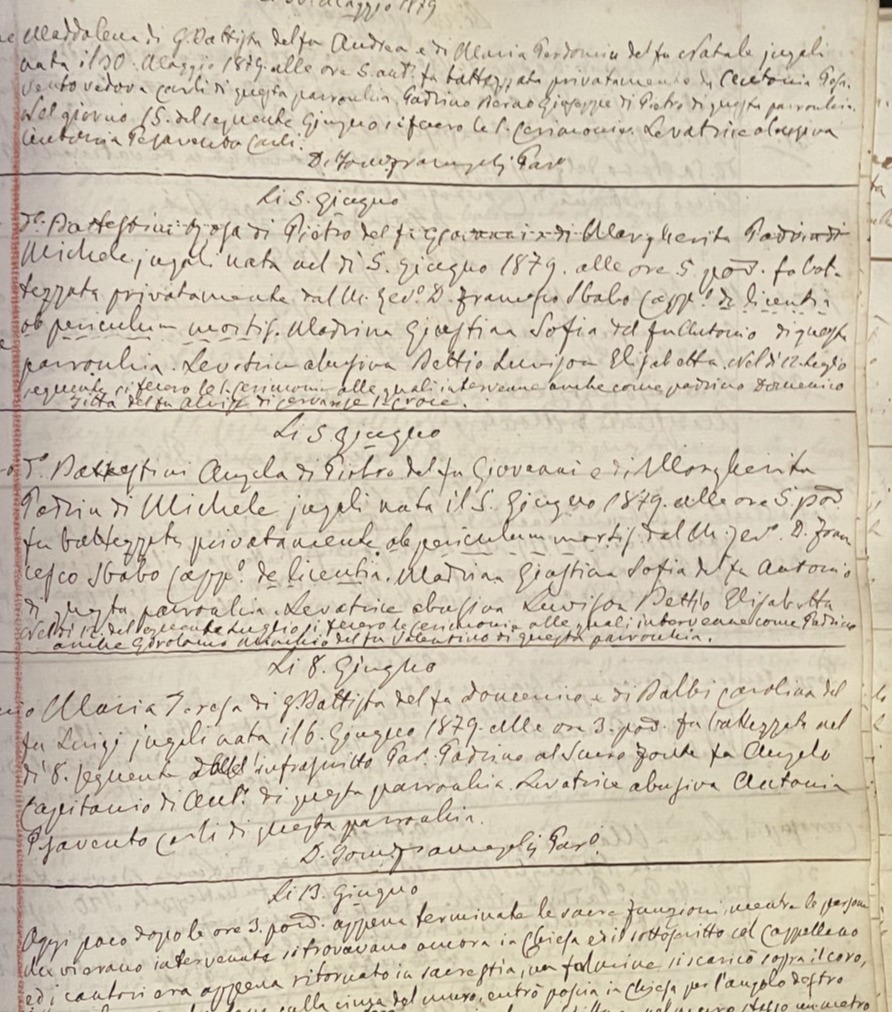 Maggio 1879
Maddalena di G. Battista del fu Andrea e di Maria del fu Natale jugali
nata il 30. Maggio 1879. alle ore 5. ant. fu battezzata privatamente da Antonia Pesa-
vento vedova Carli di questa parrochia. Padrino Giuseppe di Pietro di questa parrochia.
Nel giorno 15. del seguente Giugno si fecero le S. Cerimonie. Levatrice abusiva
Antonia Pesavento Carli.
D. Paro
Li 5. Giugno
Battestini di Pietro del fu Giovanni e di Margherita Padrin di
Michele jugali nata nel dì 5. Giugno 1879. alle ore 5 pod. fu bat-
tezzata privatamente dal M. Rev.º D. Francesco Sbabo Capp.º de licentia
ob periculum mortis. Madrina Giustina Sofia del fu Antonio di questa
parrochia. Levatrice abusiva Bettio Luvison Elisabetta. Nel dì 12 Luglio
seguente si fecero le S. Cerimonie alle quali intervenne anche come padrino Domenico
del fu
Li 5 Giugno
Battestini Angela di Pietro del fu Giovanni e di Margherita
Padrin di Michele jugali nata il 5. Giugno 1879. alle ore 5 pod.
fu battezzata privatamente ob periculum mortis dal M. Rev.º D. Fran
cesco Sbabo Capp.º de licentia. Madrina Giustina Sofia del fu Antonio
di questa parrochia. Levatrice abusiva Luvison Bettio Elisabetta
Nel dì 12. del seguente Luglio si fecero le Cerimonie alle quali intervenne come Padrino
anche Girolamo del fu Valentino di questa parrochia.
Li 8. Giugno
Maria Teresa di G. Battista del fu Domenico e di Balbi Carolina del
fu Luigi jugali nata il 6. Giugno 1879. alle ore 3. pod. fu battezzata nel
dì 8. seguente dall' infrascritto Par. Padrino al Sacro Fonte fu Angelo
Capitanio di Ant.º di questa parrochia. Levatrice abusiva Antonia
Pesavento Carli di questa parrochia.
D. Paro
Li 13. Giugno
Oggi poco dopo le ore 3. pod. appena terminate le sacre funzioni, mentre le persone
che vi erano intervenute si trovavano ancora in Chiesa ed il sottoscritto col Cappellano
ed i cantori era appena ritornato in sacrestia, un fulmine si scaricò sopra il coro,
sulla cima del muro, entrò poscia in Chiesa per l'angolo destro